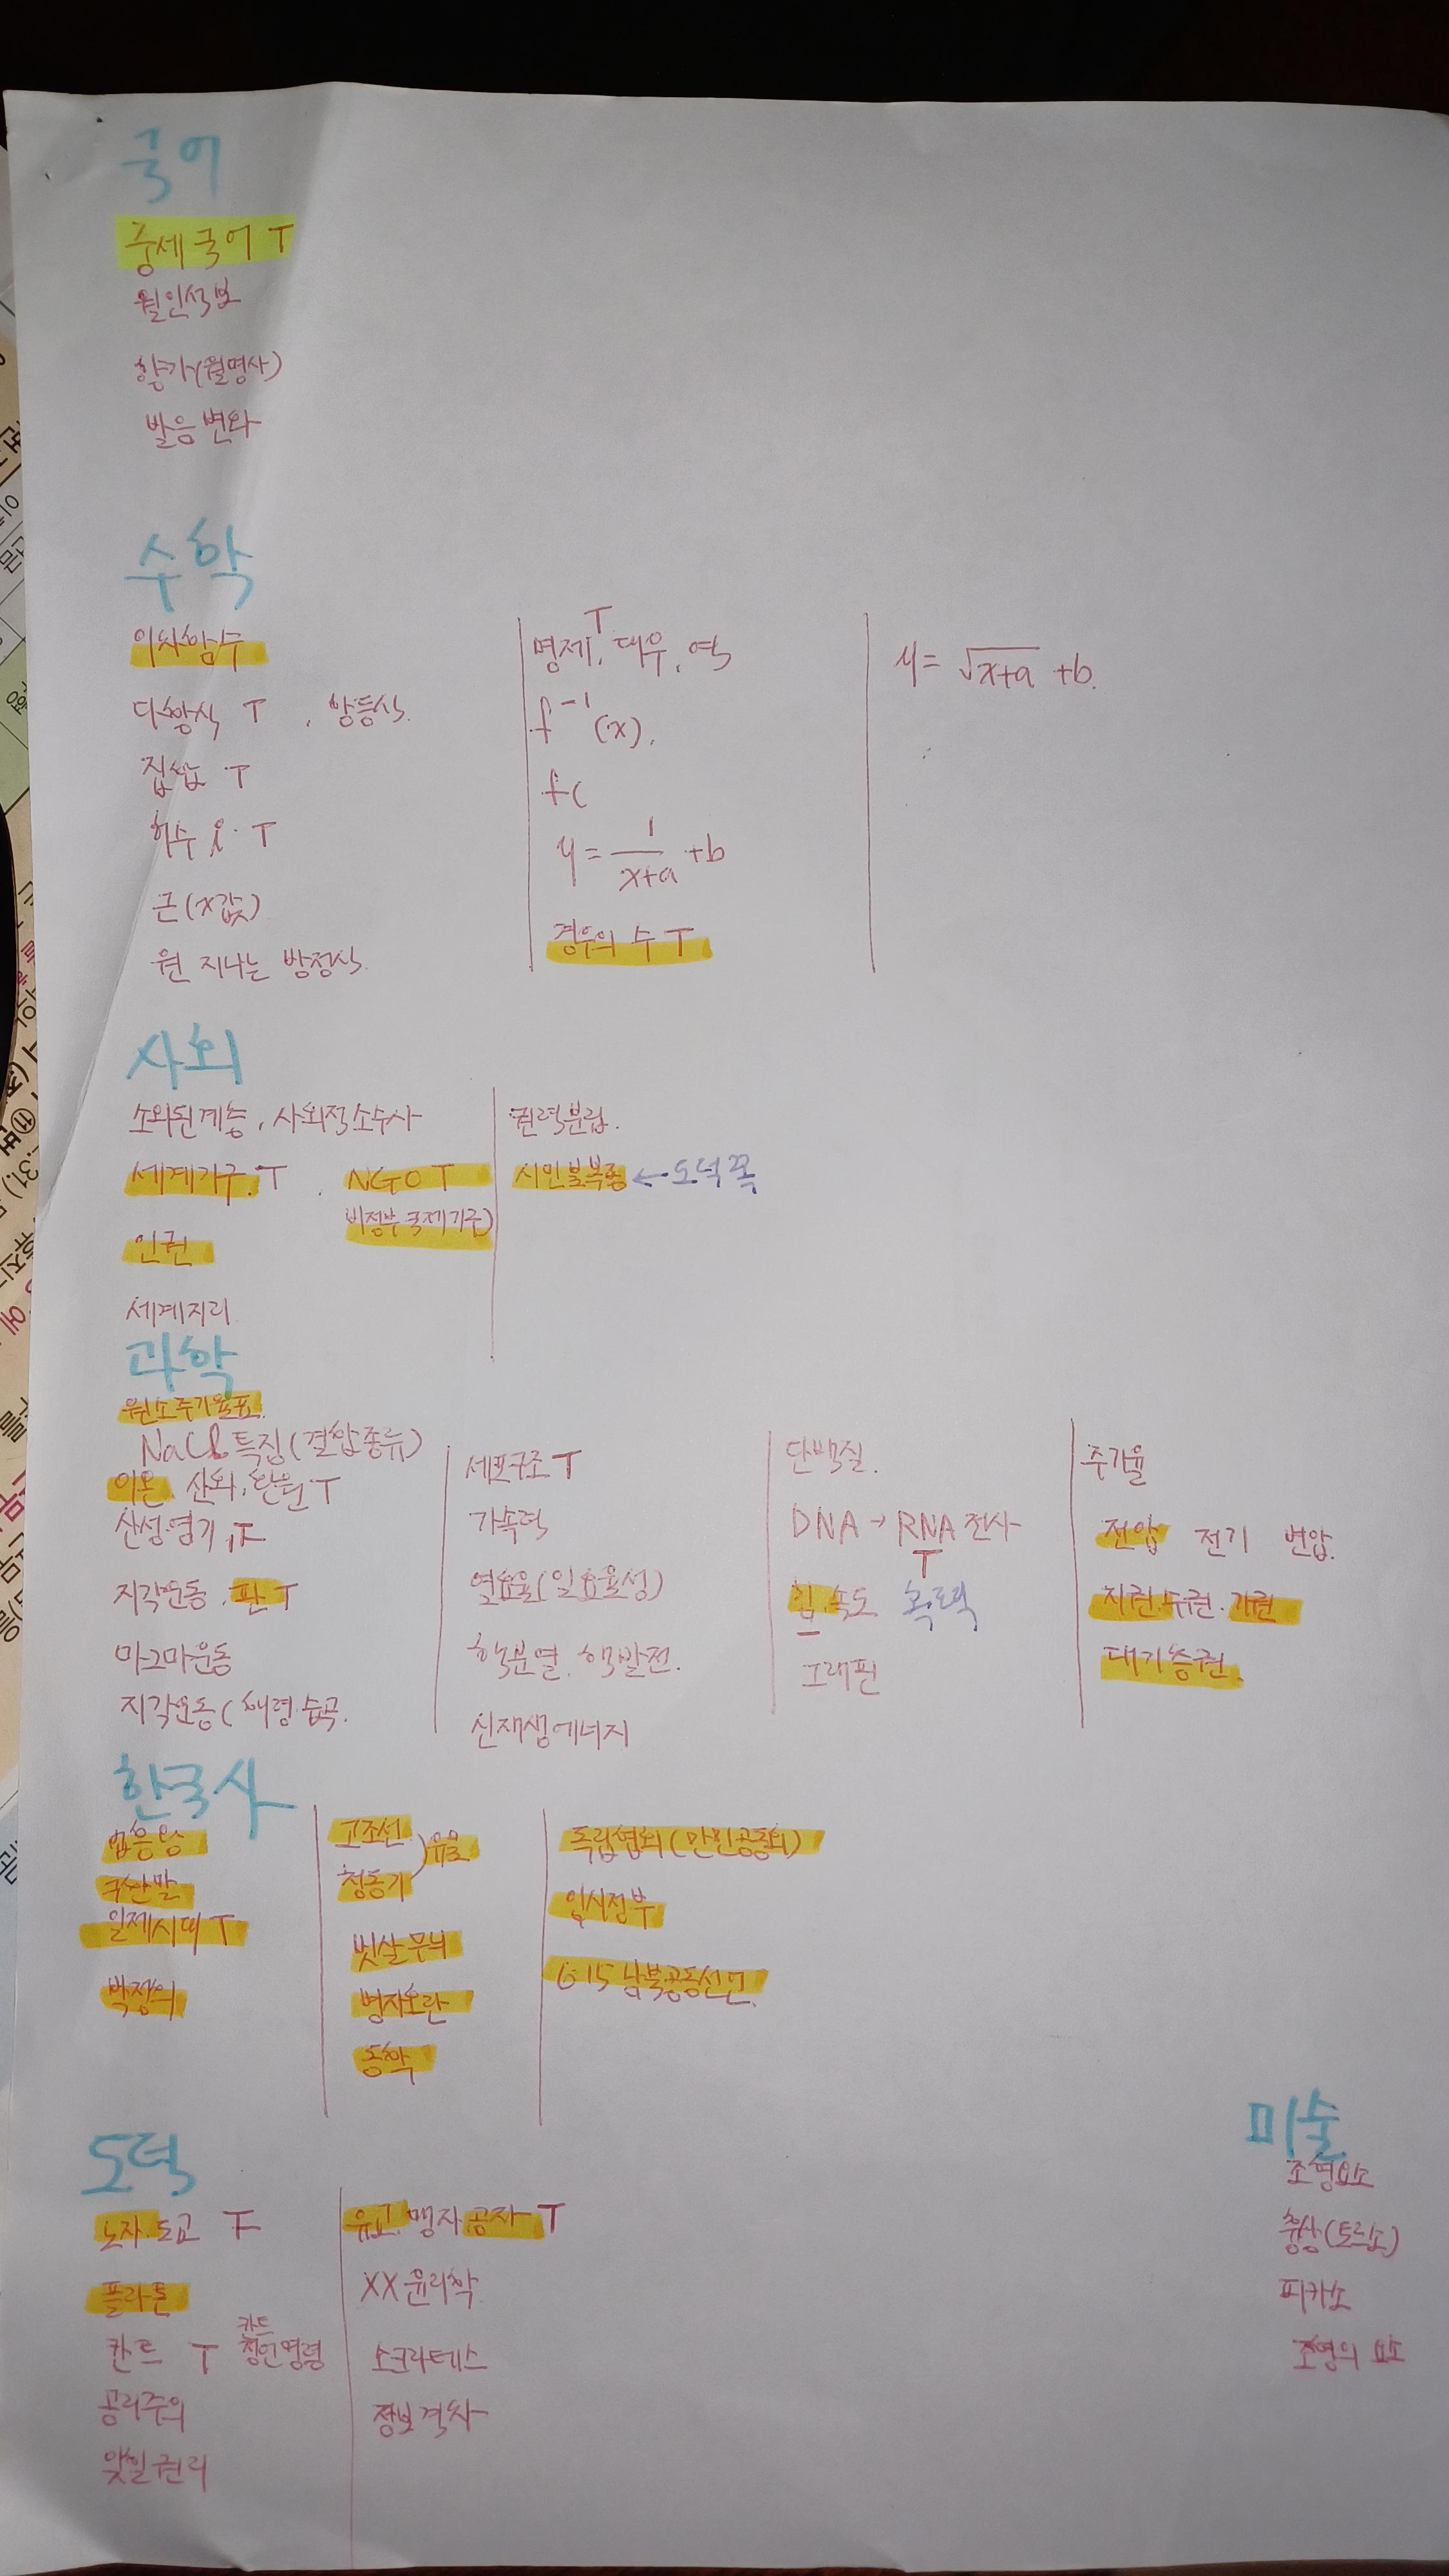 국어
중세국어 T
월인석보
향가(월명사)
발음 변화
수학
이차함수
다항식 T , 항등식.
집합 T
허수 i T
근(x값)
원 지나는 방정식.
명제, T 대우, 역
f⁻¹(x).
f(
y = 1/(x+a) + b
경우의 수 T
y = √(x+a) + b.
사회
소외된계층, 사회적소수자
세계기구 T , NGO T
비정부국제기구)
인권
세계지리
권력분립.
시민불복종 ← 도덕 꼭
과학
원소주기율표.
NaCl 특징(결합종류)
이온. 산화, 환원 T
산성·염기, T
지각운동. 판 T
마그마운동
지각운동( 해령 습곡.
세포구조 T
가속력
열효율(일효율성)
핵분열. 핵발전.
신재생에너지
단백질.
DNA → RNA 전사
T
힘 속도
그래핀
주기율
전압 전기 변압.
지권. 수권. 기권
대기층권.
한국사
구한말
일제시대 T
박정희
고조선
청동기 ) 유물
빗살무늬
병자호란
동학
독립협회(만민공동회)
임시정부
6·15 남북공동선언.
도덕
노자. 도교 T
플라톤
칸트 T 칸트 정언명령
공리주의
잊힐권리
유교. 맹자. 공자 T
XX윤리학
소크라테스
정보격차
미술
조형요소
흉상(토르소)
피카소
조형의 요소